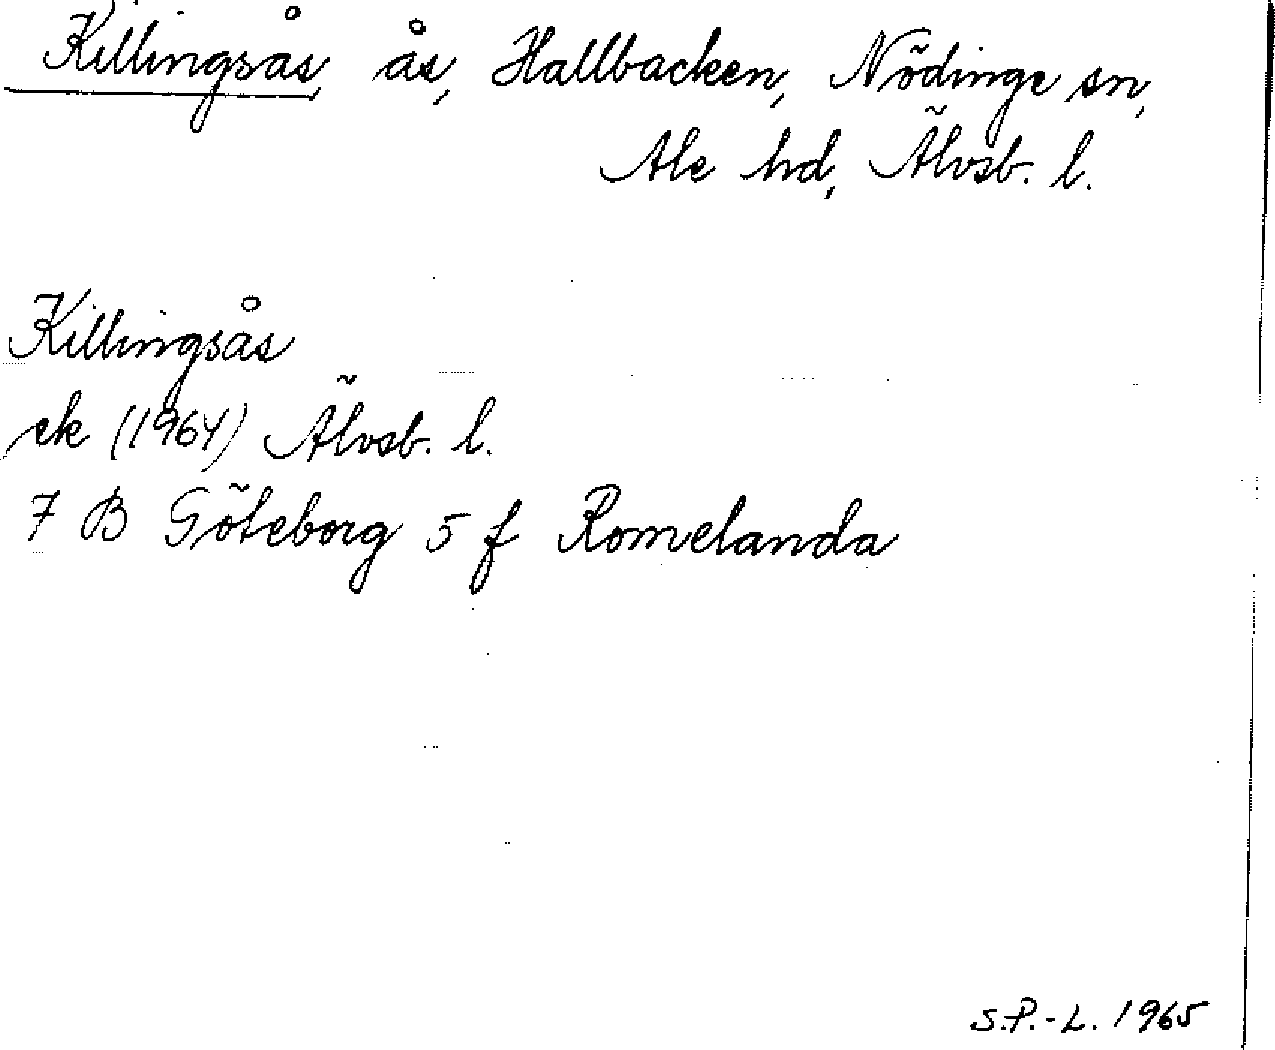 Killingsås, ås, Hallbacken, Nödinge sn,
Ale hd, Älvsb. l.
Killingsås
ek (1964) Älvsb. l.
7 B Göteborg 5 f Romelanda
S.P.-L. 1965